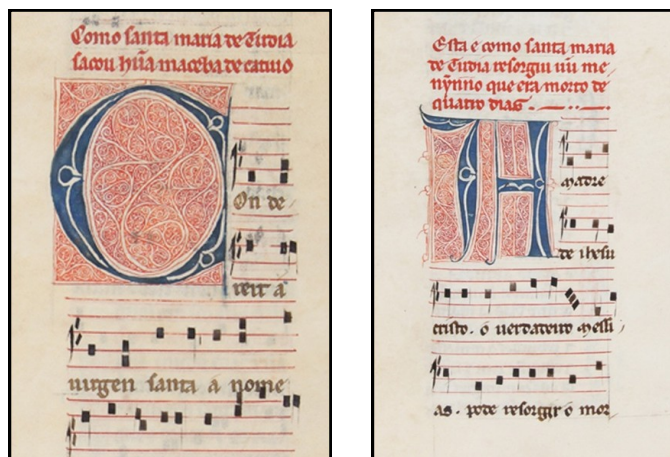 Como santa maria de Tudia
sacou hũa māceba de catiuo
On de
reit a
uirgen santa a nome
Esta e como santa maria
de Tudia resorgiu uu me
nỹnno que era morto de
quatro dias.
madre
de ihesu
cristo. o uerdadeiro messi
as. pode resorgir o mor